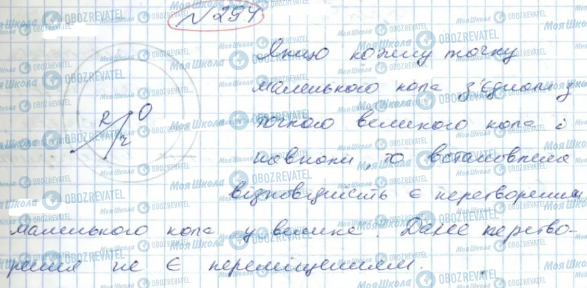 № 294
Якщо кожну точку
маленького кола з'єднати з
точкою великого кола і
навпаки, то встановлена
відповідність є перетворенням
маленького кола у велике. Дане перетво-
рення не є переміщенням.
R O
r
Моя Школа OBOZREVATEL